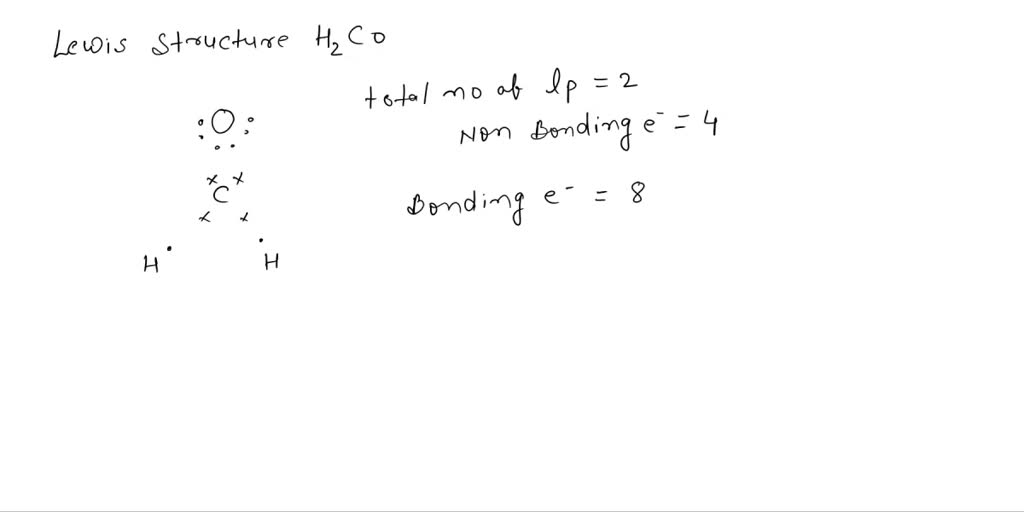 Lewis Structure H₂CO
total no of lp = 2
Non Bonding e⁻ = 4
:O:
C
H H
Bonding e⁻ = 8